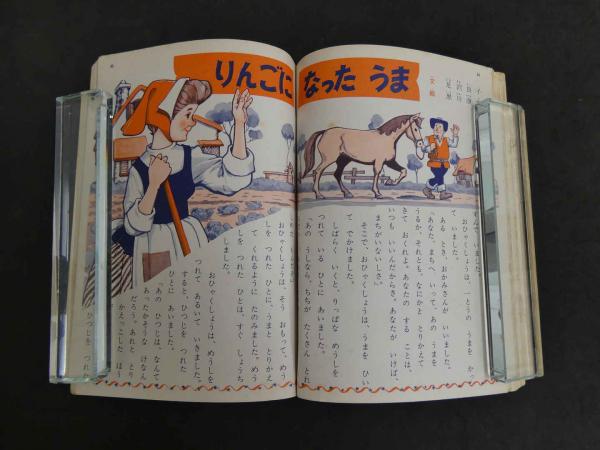 りんごに なった うま
文
絵
て いました。
おひゃくしょうは、一とうの うまを かっ
て いました。
ある とき、おかみさんが いいました。
「あなた、まちへ いって、あの うまを
うるか、それとも、なにかと とりかえて
きて おくれよ。あなたの する ことは、
いつも いいんだから。あなたが いけば、
まちがいないしさ。」
そこで、おひゃくしょうは、うまを ひい
て でかけました。
しばらく いくと、りっぱな めうしを
つれて いる ひとに あいました。
「あの うしなら、ちちが たくさん とれ
おひゃくしょうは、そう おもって、めう
しを つれた ひとに、うまと とりかえ
て くれるように たのみました。めう
しを つれた ひとは、すぐ しょうち
しました。
おひゃくしょうは、めうしを
つれて あるいて いきました。
すると、ひつじを つれた
ひとに あいました。
「あの ひつじは、なんて
あったかそうな けなん
だろう。あれと とり
かえっこした ほう
ひつじを つれた